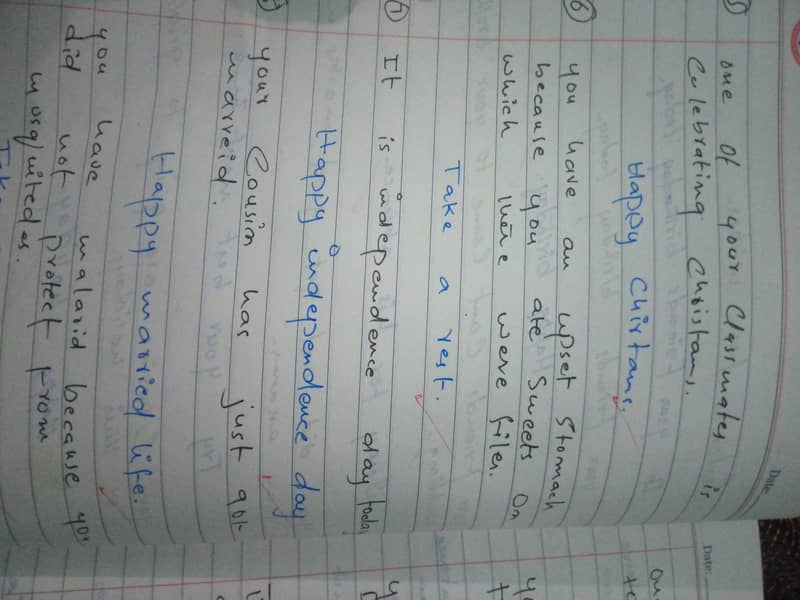 Date
5) one of your Classmates is
Celebrating Christams.
Happy Chirtams.
6 you have an upset stomach
because you ate sweets on
which there were flies.
Take a rest.
It is independence day today
Happy independence day
your Cousin has just got
marreid.
Happy married life.
you have malarid because you
did not protect from
mosquitedes.
Take
Date: